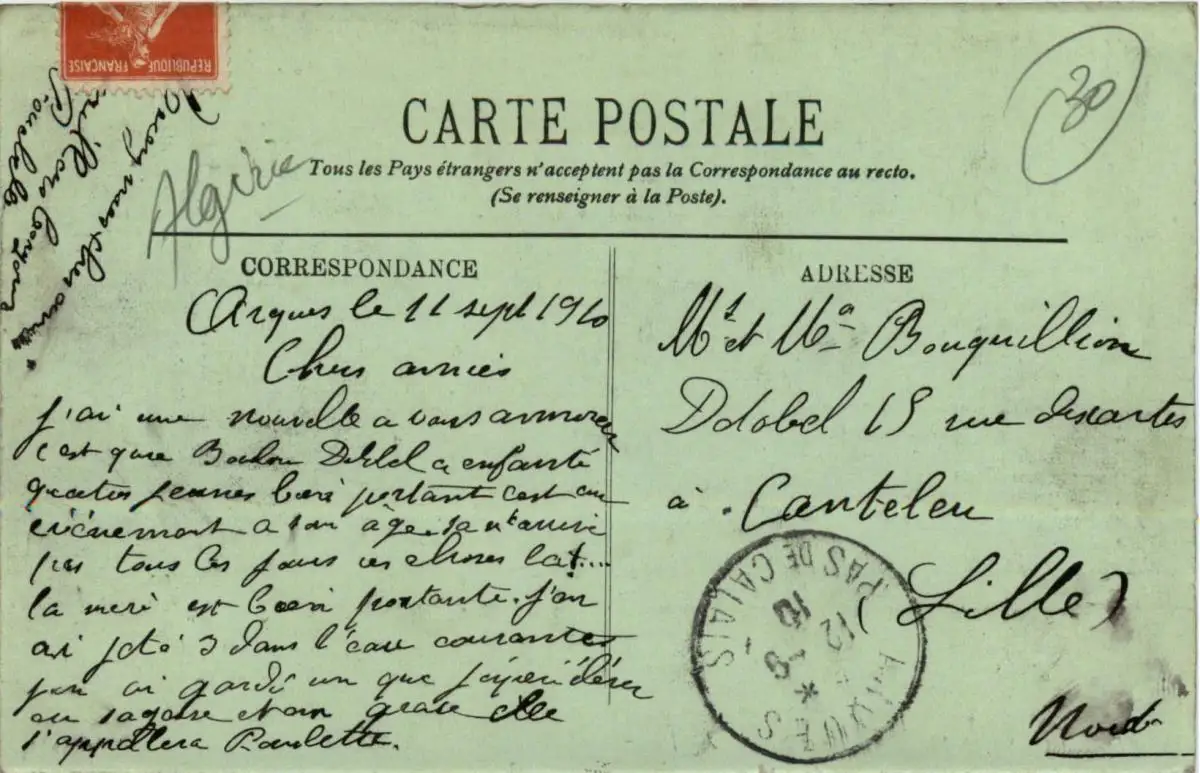 REPUBLIQUE FRANÇAISE
CARTE POSTALE
Tous les Pays étrangers n'acceptent pas la Correspondance au recto.
(Se renseigner à la Poste).
30
Algérie
CORRESPONDANCE
Arques le 11 sept 1910
Chers amies
j'ai une nouvelle a vous annoncer
c'est que enfanté
quatres jeunes bien portant c'est un
évènement a son âge. sa n'arrive
pas tous les jours ces choses la!...
la mere est bien portante. j'en
ai jeté 3 dans l'eau courantes
j'en ai gardé un que
elle
s'appellera Paulette.
mes chers amies.
Paulette
ADRESSE
Mr et Ma Bouquillion
Delobel 15 rue descartes
à Canteleu
(Lille)
Nord
ARQUES
PAS DE CALAIS
12 -9
10